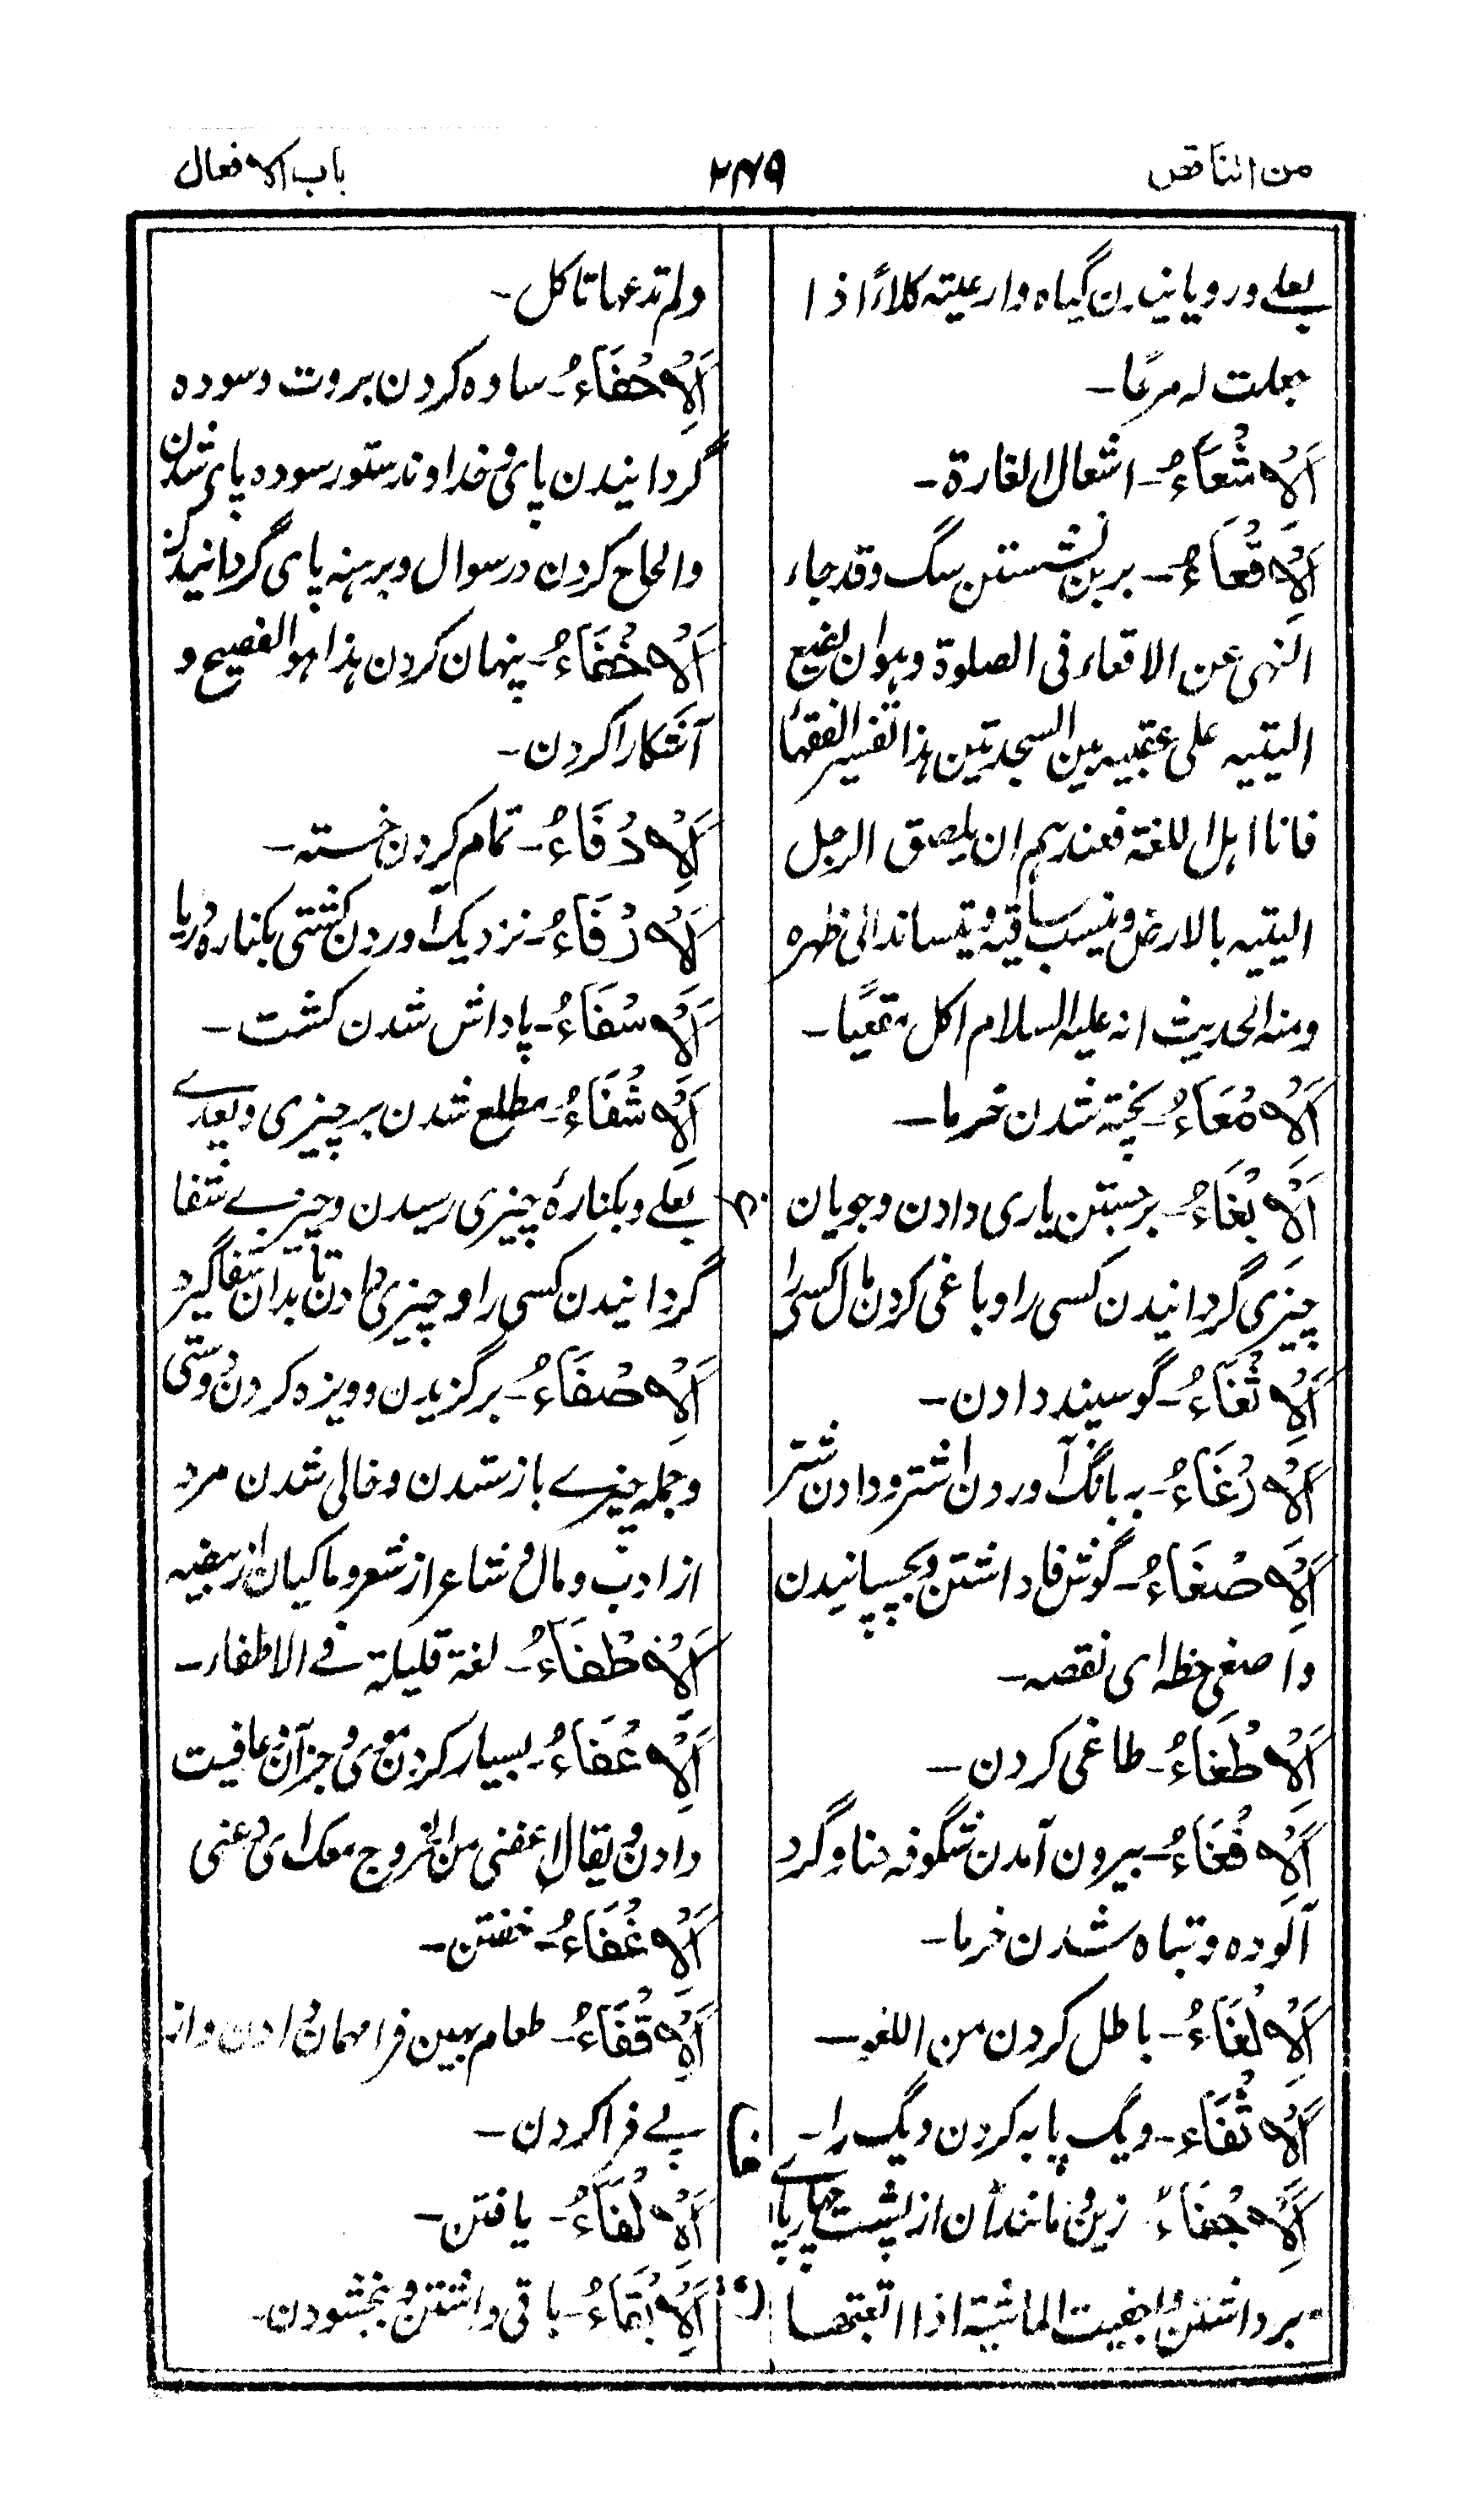 من الناقص
۲۴۹
باب الافعال
بعلے ورویانیدن گیاه وارعیته کلاءً اذا
جعلت له مرعًا۔
اَلْاِشْعَاءُ۔ اشعال الغارة۔
اَلْاِقْعَاءُ۔ برین نشستن سگ وقد جاء
النهی عن الاقعاء فی الصلوة وهو ان یضع
الیتیه علی عقبیه بین السجدتین هذا تفسیر الفقهاء
فاما اهل اللغة فعندهم ان یلصق الرجل
الیتیه بالارض وینصب ساقیه ویتساند الی ظهره
ومنه الحدیث انه علیه السلام اکل مقعیًا۔
اَلْاِمْعَاءُ۔ پخته شدن خرما۔
اَلْاِبْغَاءُ۔ برجستن یاری دادن وجویان
چیزی گردانیدن کسی را وباغی کردن مال کسی را
اَلْاِثْغَاءُ۔ گوسپند دادن۔
اَلْاِرْغَاءُ۔ به بانگ آوردن اشتر ودادن شتر
اَلْاِصْغَاءُ۔ گوش فا داشتن وبچسپانیدن
واصغی حظه ای نقصه۔
اَلْاِطْغَاءُ۔ طاغی کردن۔
اَلْاِفْغَاءُ۔ بیرون آمدن شگوفه حنا وگرد
آلوده وتباه شدن خرما۔
اَلْاِلْغَاءُ۔ باطل کردن من اللغو۔
اَلْاِثْفَاء۔ دیگ پایه کردن دیگ را۔
اَلْاِجْفَاءُ۔ زین ومانند آن از پشت چهارپاے
برداشتن واجفیت الماشیة اذا اتعبتها
ولم تدعها تاکل۔
اَلْاِحْفَاءُ۔ ساده کردن بروت وسوده
گردانیدن پای وخداوند ستور سوده پای شدن
والحاح کردن در سوال وبرهنه پای گردانیدن
اَلْاِخْفَاءُ۔ پنهان کردن هذا هو الفصیح و
آشکارا کردن۔
اَلْاِدْفَاءُ۔ تمام کردن خسته۔
اَلْاِرْفَاءُ۔ نزدیک آوردن کشتی بکناره دریا
اَلْاِسْفَاءُ۔ پاداش شدن کشت۔
اَلْاِشْفَاءُ۔ مطلع شدن بر چیزی ویعدے
بعلے وبکنارۀ چیزی رسیدن وچیزے شفا
گردانیدن کسی را وچیزی دادن تا بدان شفا گیرد
اَلْاِصْفَاءُ۔ برگزیدن وویژه کردن دوستی
وجمله چیزے بازستدن وخالی شدن مرد
از ادب ومال وشاعر از شعر وماکیان از بیضه
اَلْاِطْفَاءُ۔ لغة قلیلة فے الاطفاء۔
اَلْاِعْفَاءُ۔ بسیار کردن موی وجز آن وعافیت
دادن ویقال اعفنی من الخروج معک ای دعنی
اَلْاِغْفَاءُ۔ خفتن۔
اَلْاِقْفَاءُ۔ طعام بهین فرا مهمان دادن واز
پے فرا کردن۔
اَلْاِلْفَاءُ۔ یافتن۔
اَلْاِبْقَاءُ۔ باقی داشتن وبخشودن۔